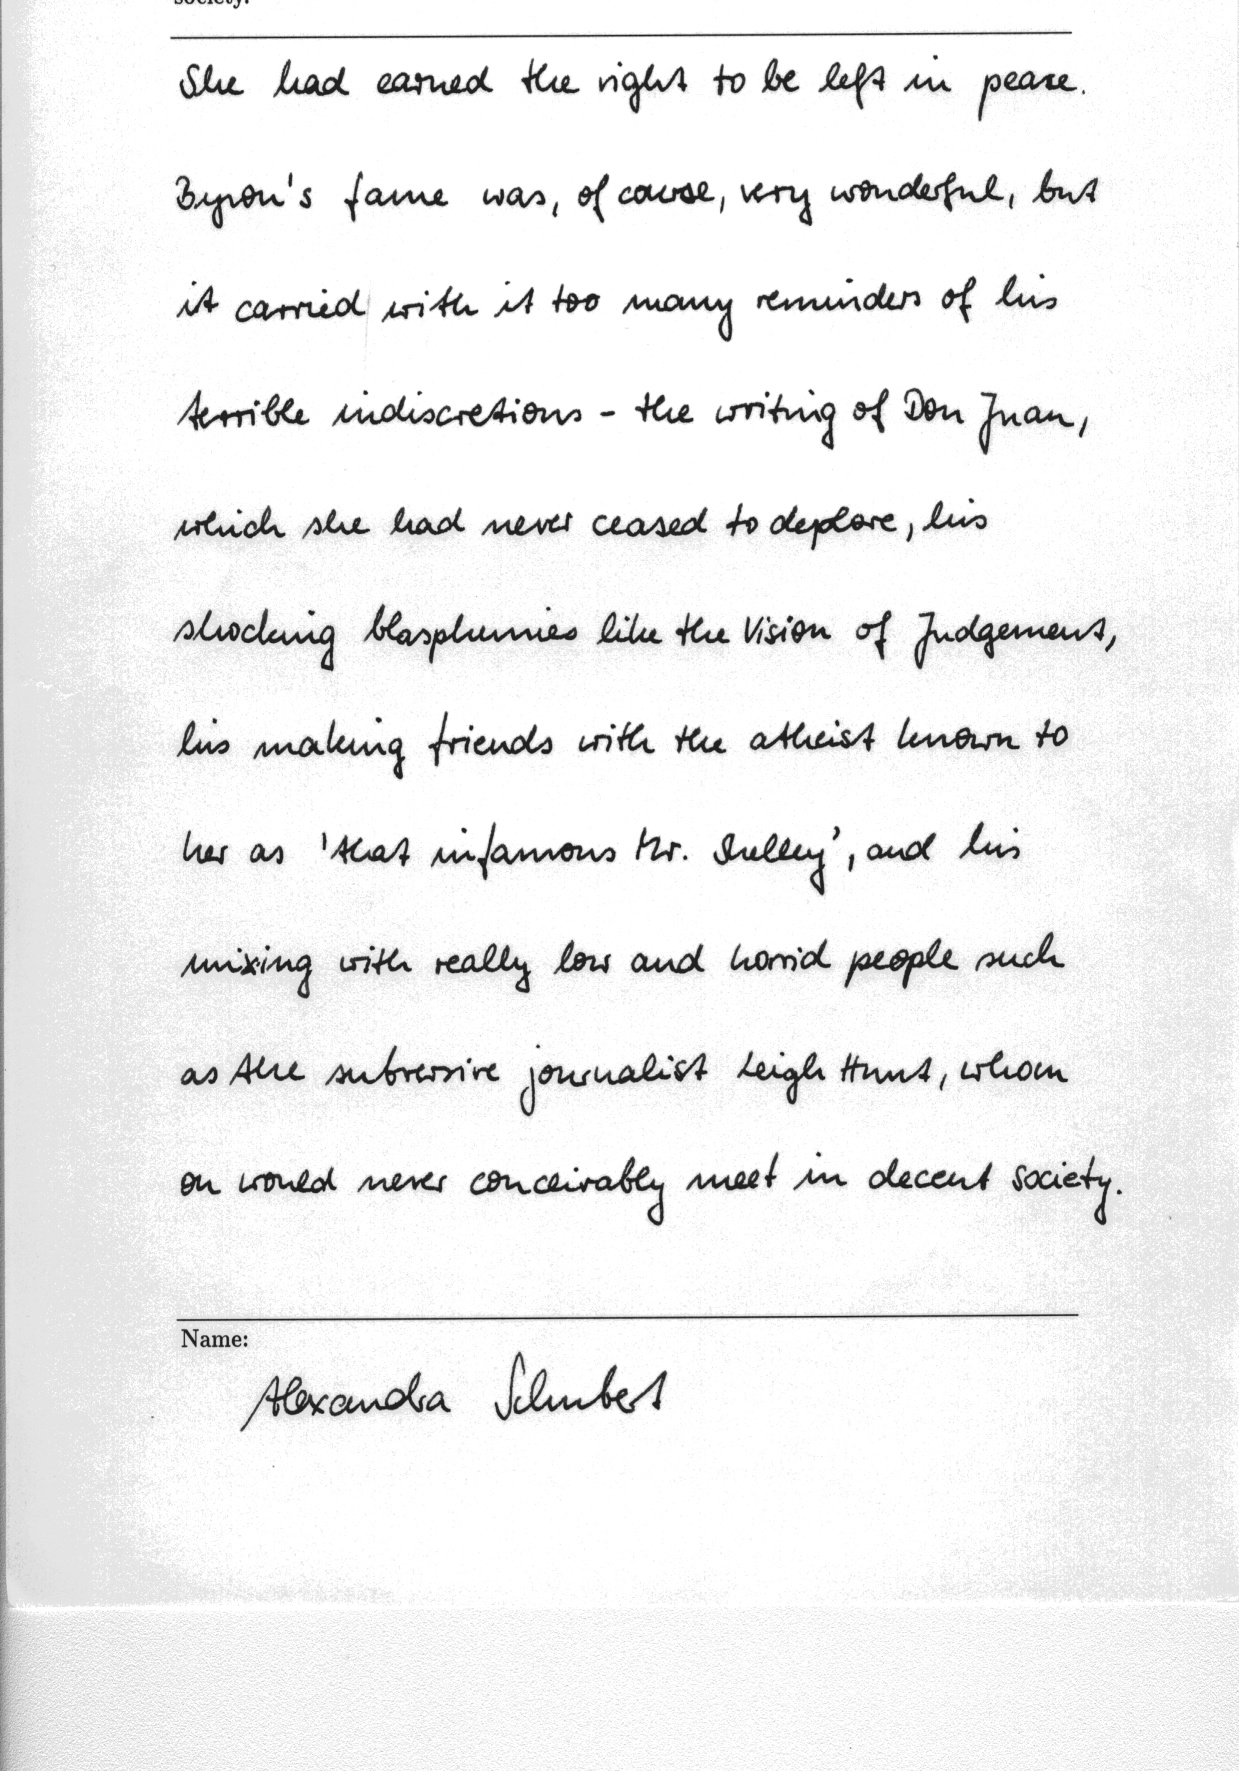 society.
She had earned the right to be left in peace.
Byron's fame was, of course, very wonderful, but
it carried with it too many reminders of his
terrible indiscretions - the writing of Don Juan,
which she had never ceased to deplore, his
shocking blasphemies like the Vision of Judgement,
his making friends with the atheist known to
her as 'that infamous Mr. Shelley', and his
mixing with really low and horrid people such
as the subversive journalist Leigh Hunt, whom
on would never conceivably meet in decent society.
Name:
Alexandra Schubert